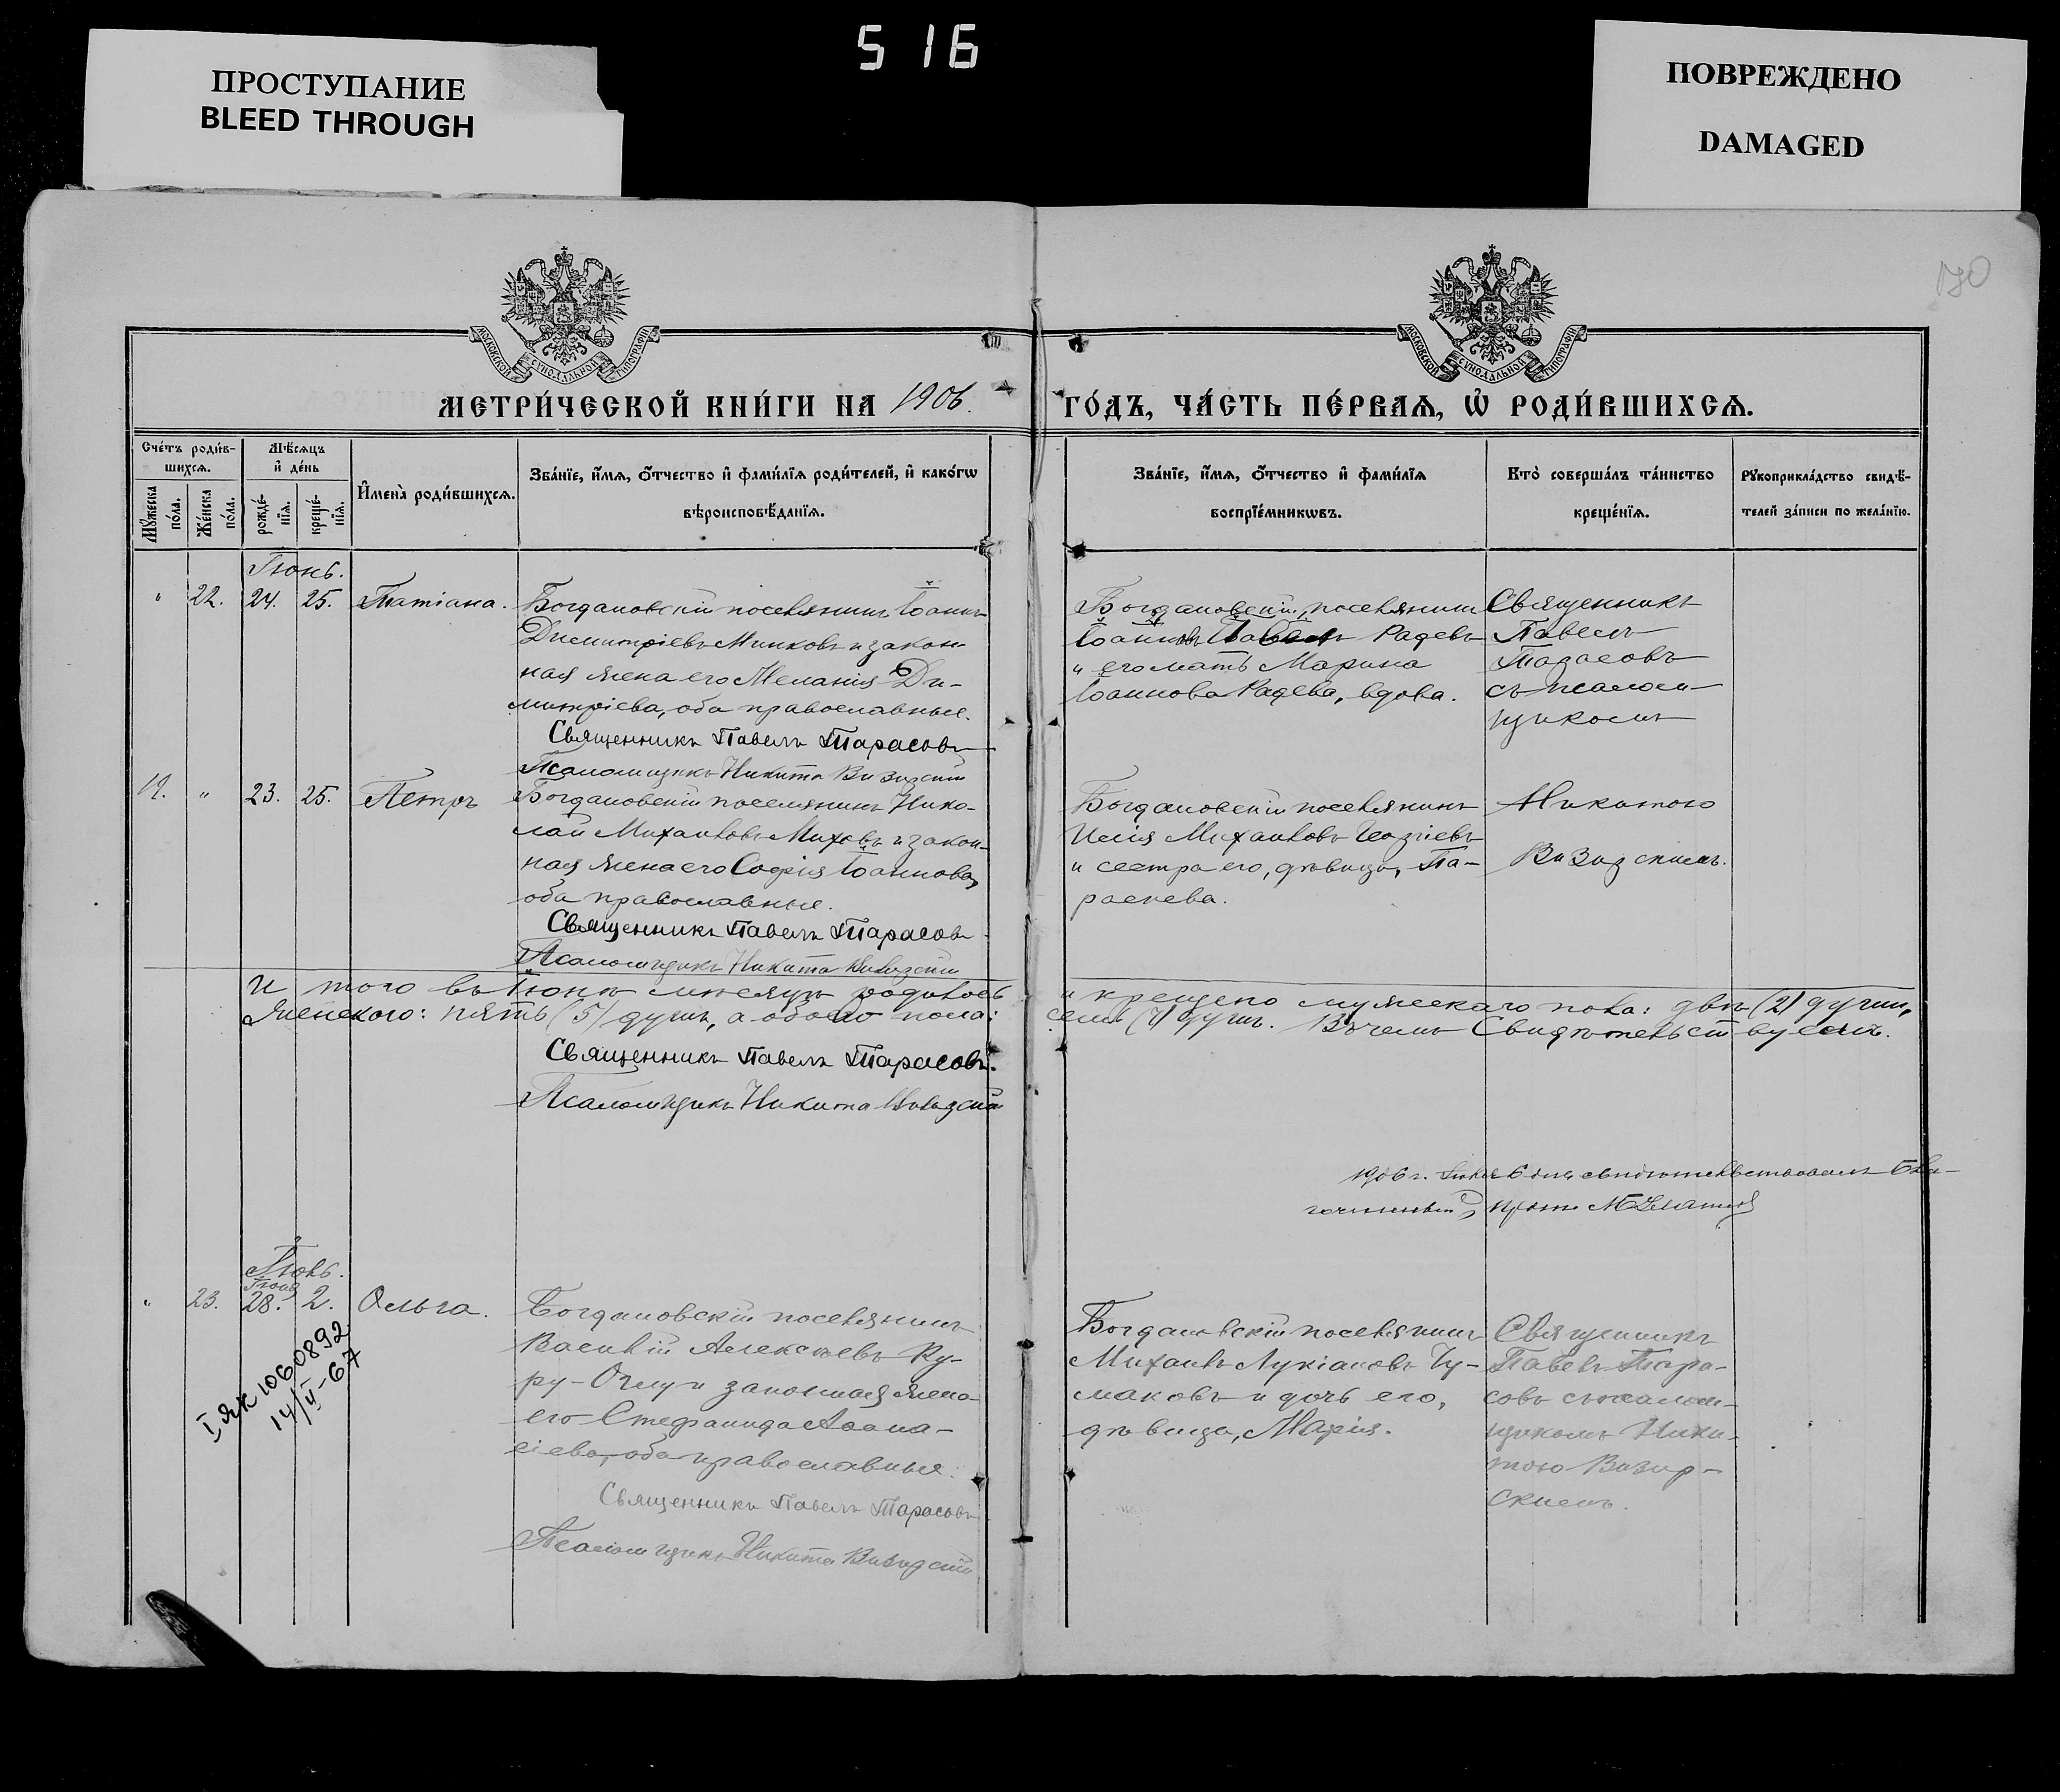 516
ПРОСТУПАНИЕ
BLEED THROUGH
ПОВРЕЖДЕНО
DAMAGED
170
МОСКОВСКОЙ СѴНОДАЛЬНОЙ ТИПОГРАФІИ
МОСКОВСКОЙ СѴНОДАЛЬНОЙ ТИПОГРАФІИ
МЕТРИ́ЧЕСКОЙ КНИ́ГИ НА 1906.
ГО́ДЪ, ЧА́СТЬ ПЕ́РВАѦ, Ѡ҆ РОДИ́ВШИХСѦ.
Сче́тъ роди́в-
шихсѧ.
Мꙋ́жеска по́ла.
Же́нска по́ла.
Мѣ́сѧцъ
и҆ де́нь
рожде́-
нїѧ.
креще́-
нїѧ.
И҆мена̀ роди́вшихсѧ.
Зва́нїе, и҆́мѧ, ѻ҆́тчество и҆ фами́лїѧ роди́телей, и҆ како́гѡ
вѣроисповѣ́данїѧ.
Зва́нїе, и҆́мѧ, ѻ҆́тчество и҆ фами́лїѧ
воспрїе́мникѡвъ.
Кто̀ соверша́лъ та́инство
креще́нїѧ.
Рꙋкоприкла́дство свидѣ́-
телей за́писи по жела́нїю.
Іюнь.
" 22. 24. 25. Татіана.
Богдановскій поселянинъ Іоаннъ
Димитріевъ Минковъ и закон-
ная жена его Меланія Ди-
митріева, оба православные.
Священникъ Павелъ Тарасовъ
Псаломщикъ Никита Визирскій
Богдановскій поселянинъ
Іоаннъ Радевъ
и его мать Марина
Іоаннова Радева, вдова.
Священникъ
Павелъ
Тарасовъ
съ псалом-
щикомъ
12. " 23. 25. Петръ
Богдановскій поселянинъ Нико-
лай Михаиловъ Миховъ и закон-
ная жена его Софія Іоаннова,
оба православные.
Священникъ Павелъ Тарасовъ
Псаломщикъ Никита Визирскій
Богдановскій поселянинъ
Илія Михаиловъ
и сестра его, дѣвица, Па-
раскева.
Никитою
Визирскимъ.
И того въ Іюнѣ мѣсяцѣ родилось
и крещено мужескаго пола: двѣ (2) души,
женскаго: пять (5) душъ, а обоего пола:
семь (7) душъ. Въ чемъ Свидѣтельствуемъ.
Священникъ Павелъ Тарасовъ.
Псаломщикъ Никита Визирскій
1906 г. Іюля 6 дня свидѣтельствовалъ Бла-
гочинный, прот.
Іюль.
Іюня
" 23. 28. 2. Ольга.
Богдановскій поселянинъ
Василій Алексѣевъ Ку-
ру-Оглу и законная жена
его Стефанида Аѳана-
сіева, оба православные.
Священникъ Павелъ Тарасовъ
Псаломщикъ Никита Визирскій
Богдановскій поселянинъ
Михаилъ Лукіановъ Чу-
маковъ и дочь его,
дѣвица, Марія.
Священникъ
Павелъ Тара-
совъ съ псалом-
щикомъ Ники-
тою Визир-
скимъ.
I ЯК 1060892
14/II-67